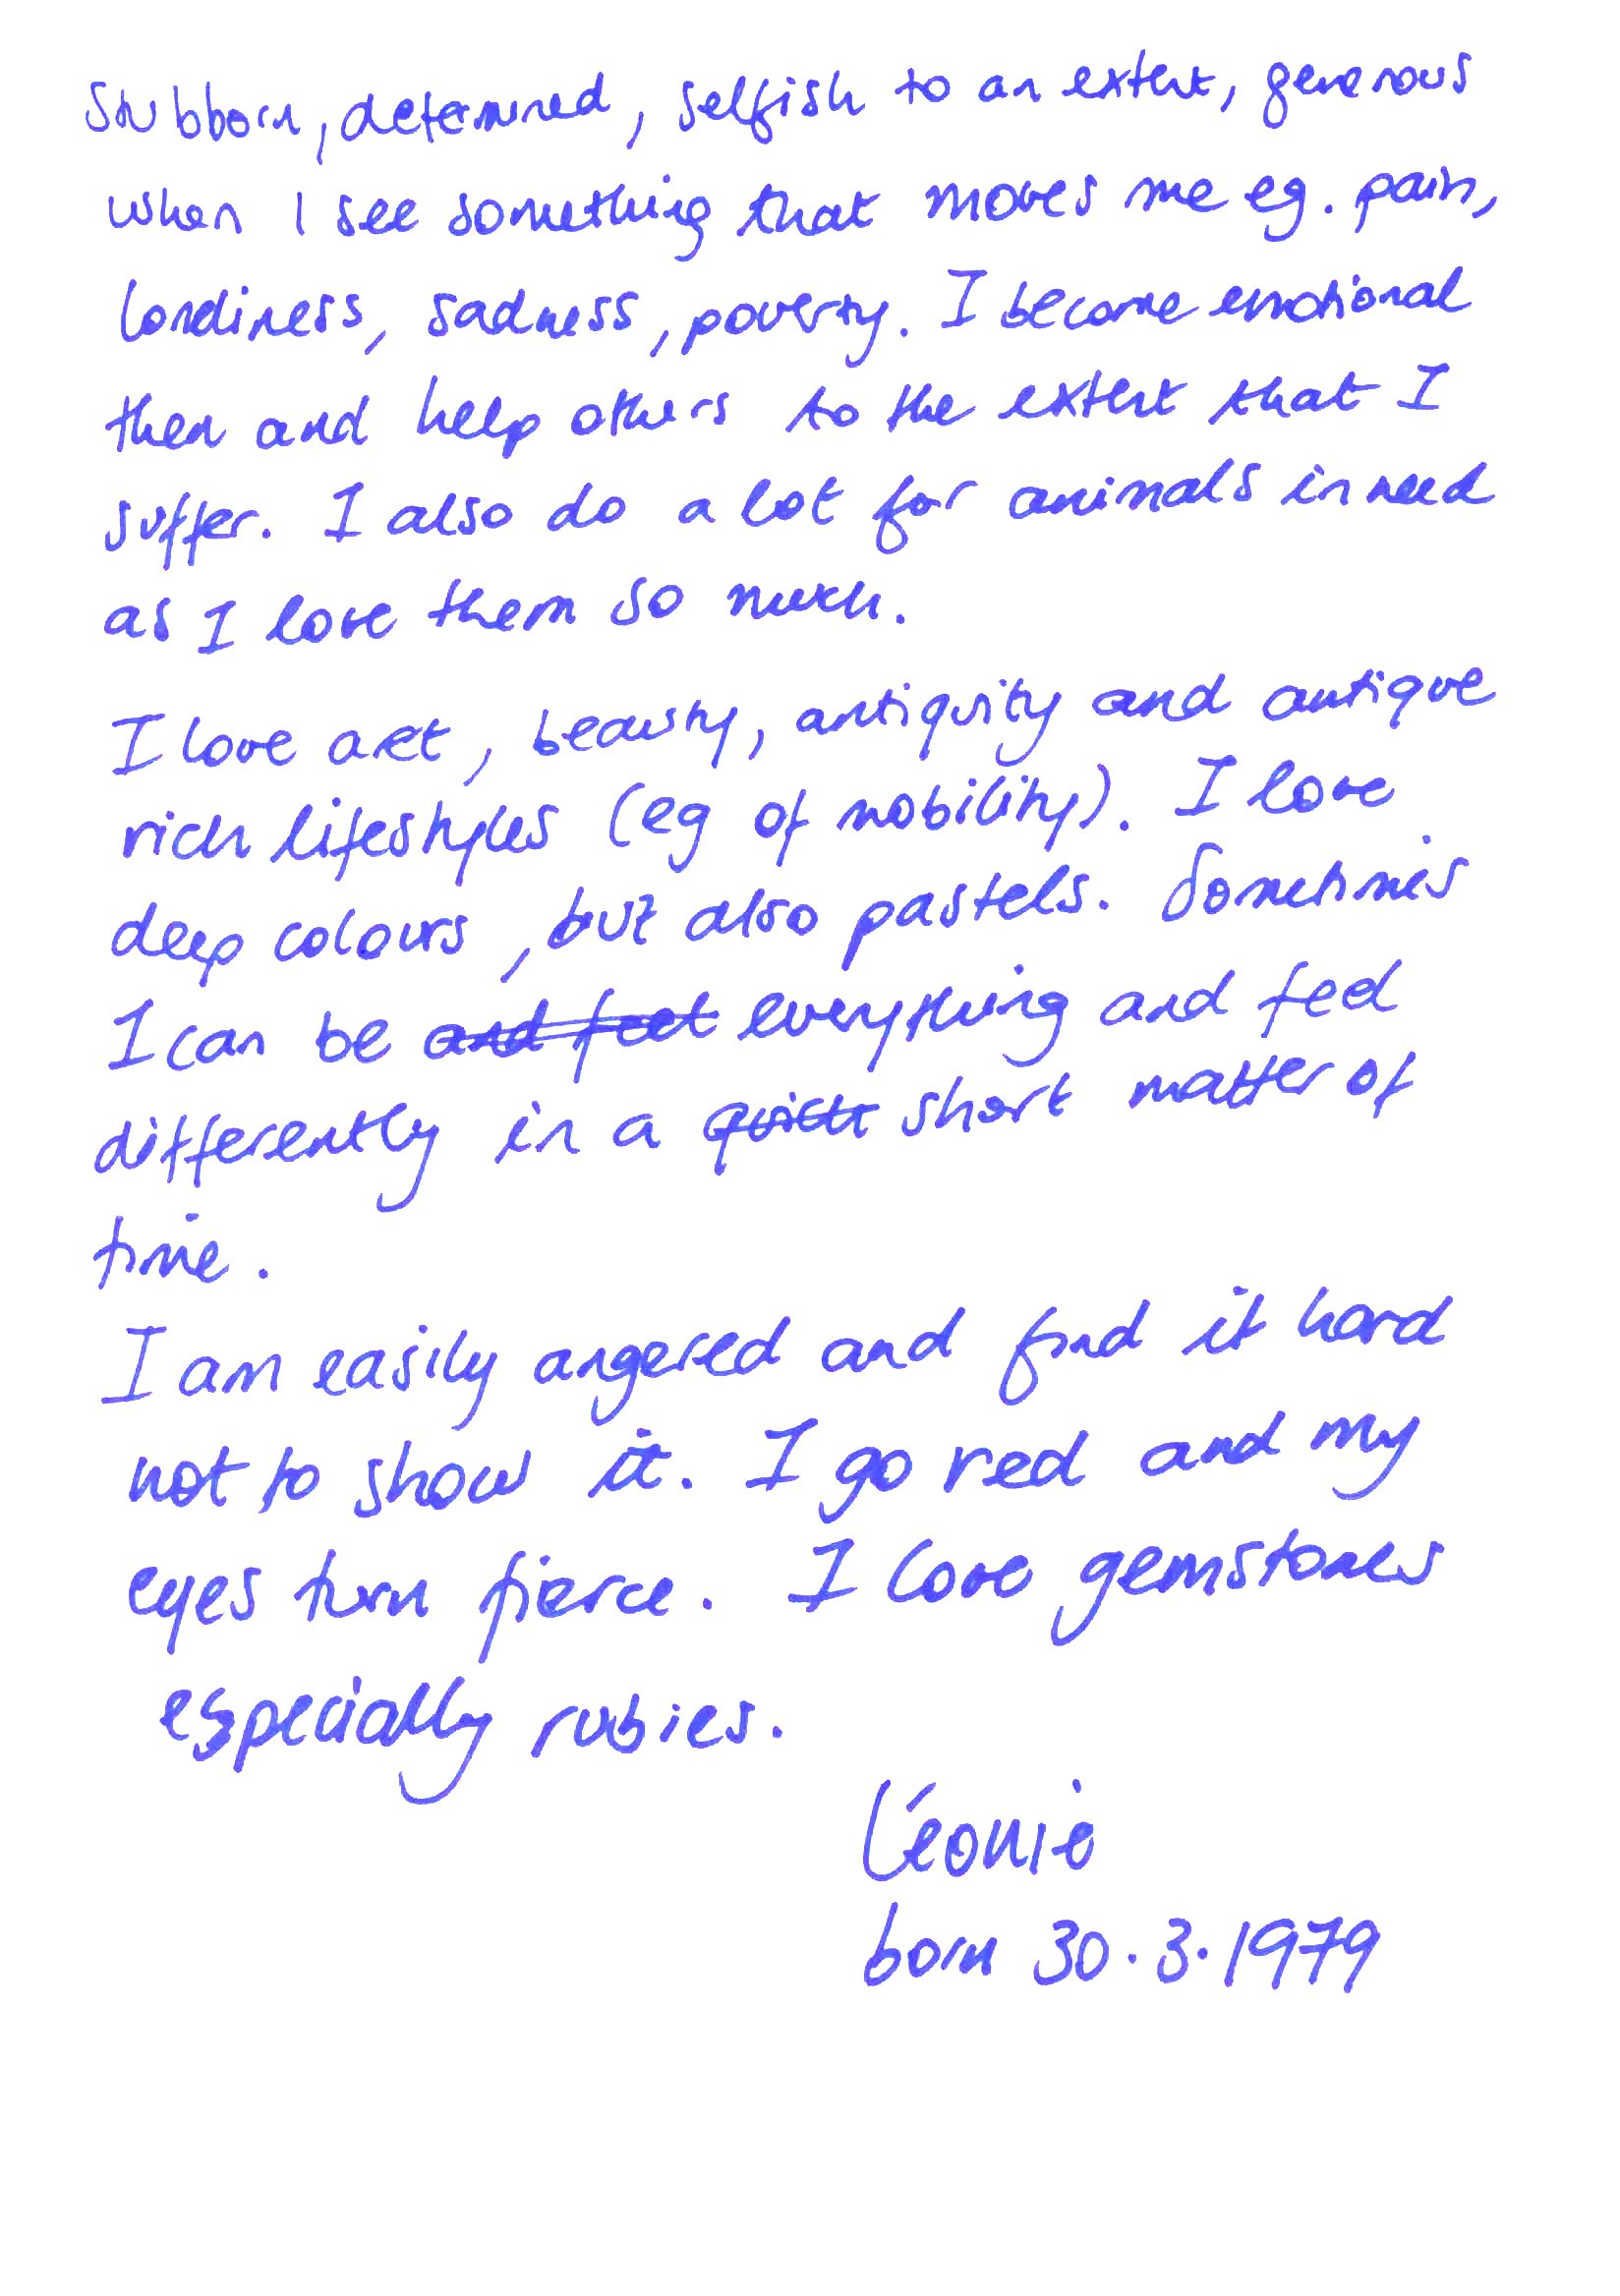 Stubborn, determined, selfish to an extent, generous
when I see something that moves me eg. pain,
loneliness, sadness, poverty. I become emotional
then and help others to the extent that I
suffer. I also do a lot for animals in need
as I love them so much.
I love art, beauty, antiquity and antique
rich lifestyles (eg of nobility). I love
deep colours, but also pastels. Sometimes
I can be and feel everything and feel
differently in a quick short matter of
time.
I am easily angered and find it hard
not to show it. I go red and my
eyes turn fierce. I love gemstones
especially rubies.
Léonie
born 30.3.1979